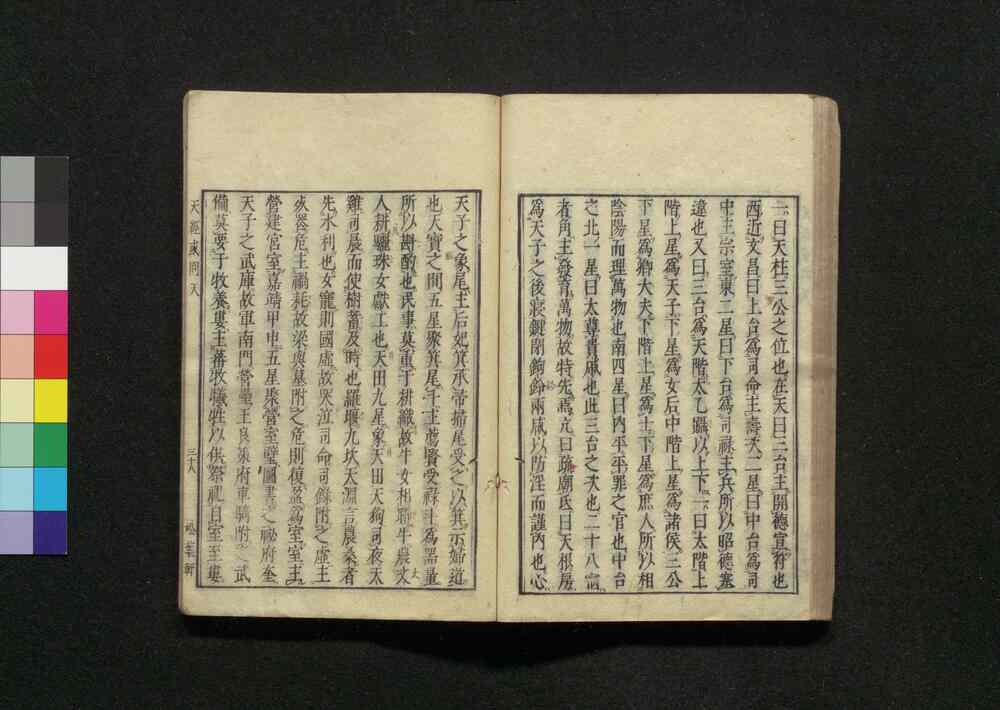 一曰天柱三公之位也在天曰三台主開德宣符也
西近文昌曰上台爲司命主壽次二星曰中台爲司
中主宗室東二星曰下台爲司祿主兵所以昭德塞
違也又曰三台爲天階太乙躡以上下一曰太階上
階上星爲天子下星爲女后中階上星爲諸侯三公
下星爲卿大夫下階上星爲士下星爲庶人所以相
陰陽而理萬物也南四星曰内平平罪之官也中台
之北一星曰太尊貴戚也此三台之次也二十八宿
者角主發育萬物故特先焉亢曰疏廟氐曰天根房
爲天子之後寢鍵閉鉤鈐兩咸以防淫而謹内也心
天子之象尾主后妃箕承帚掃尾受之以箕示婦道
也天寶之間五星聚箕尾斗主薦賢受祿斗爲器量
所以斟酌也民事莫重于耕織故牛女相聯牛農丈
人耕驪珠女獻工也天田九星象天田天狗司夜天
雞司晨而使樹蓄及時也羅堰九坎天淵言農桑者
先水利也女寵則國虛故哭泣司命司錄附之虛主
危主禍耗故梁與墓附之危則傾蓋爲室室主
營建宮室嘉靖甲申五星聚營室壁圖書之祕府奎
天子之武庫故軍南門營壘王良策府車騎附之武
備莫要于牧養婁主蕃牧犧牲以供祭祀自室至婁
天經或問天
三十八
松葉軒